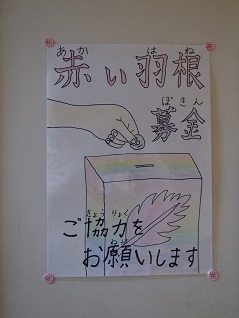 あか はね
赤い羽根
ぼきん
募金
きょうりょく
ご協力を
ねが
お願いします